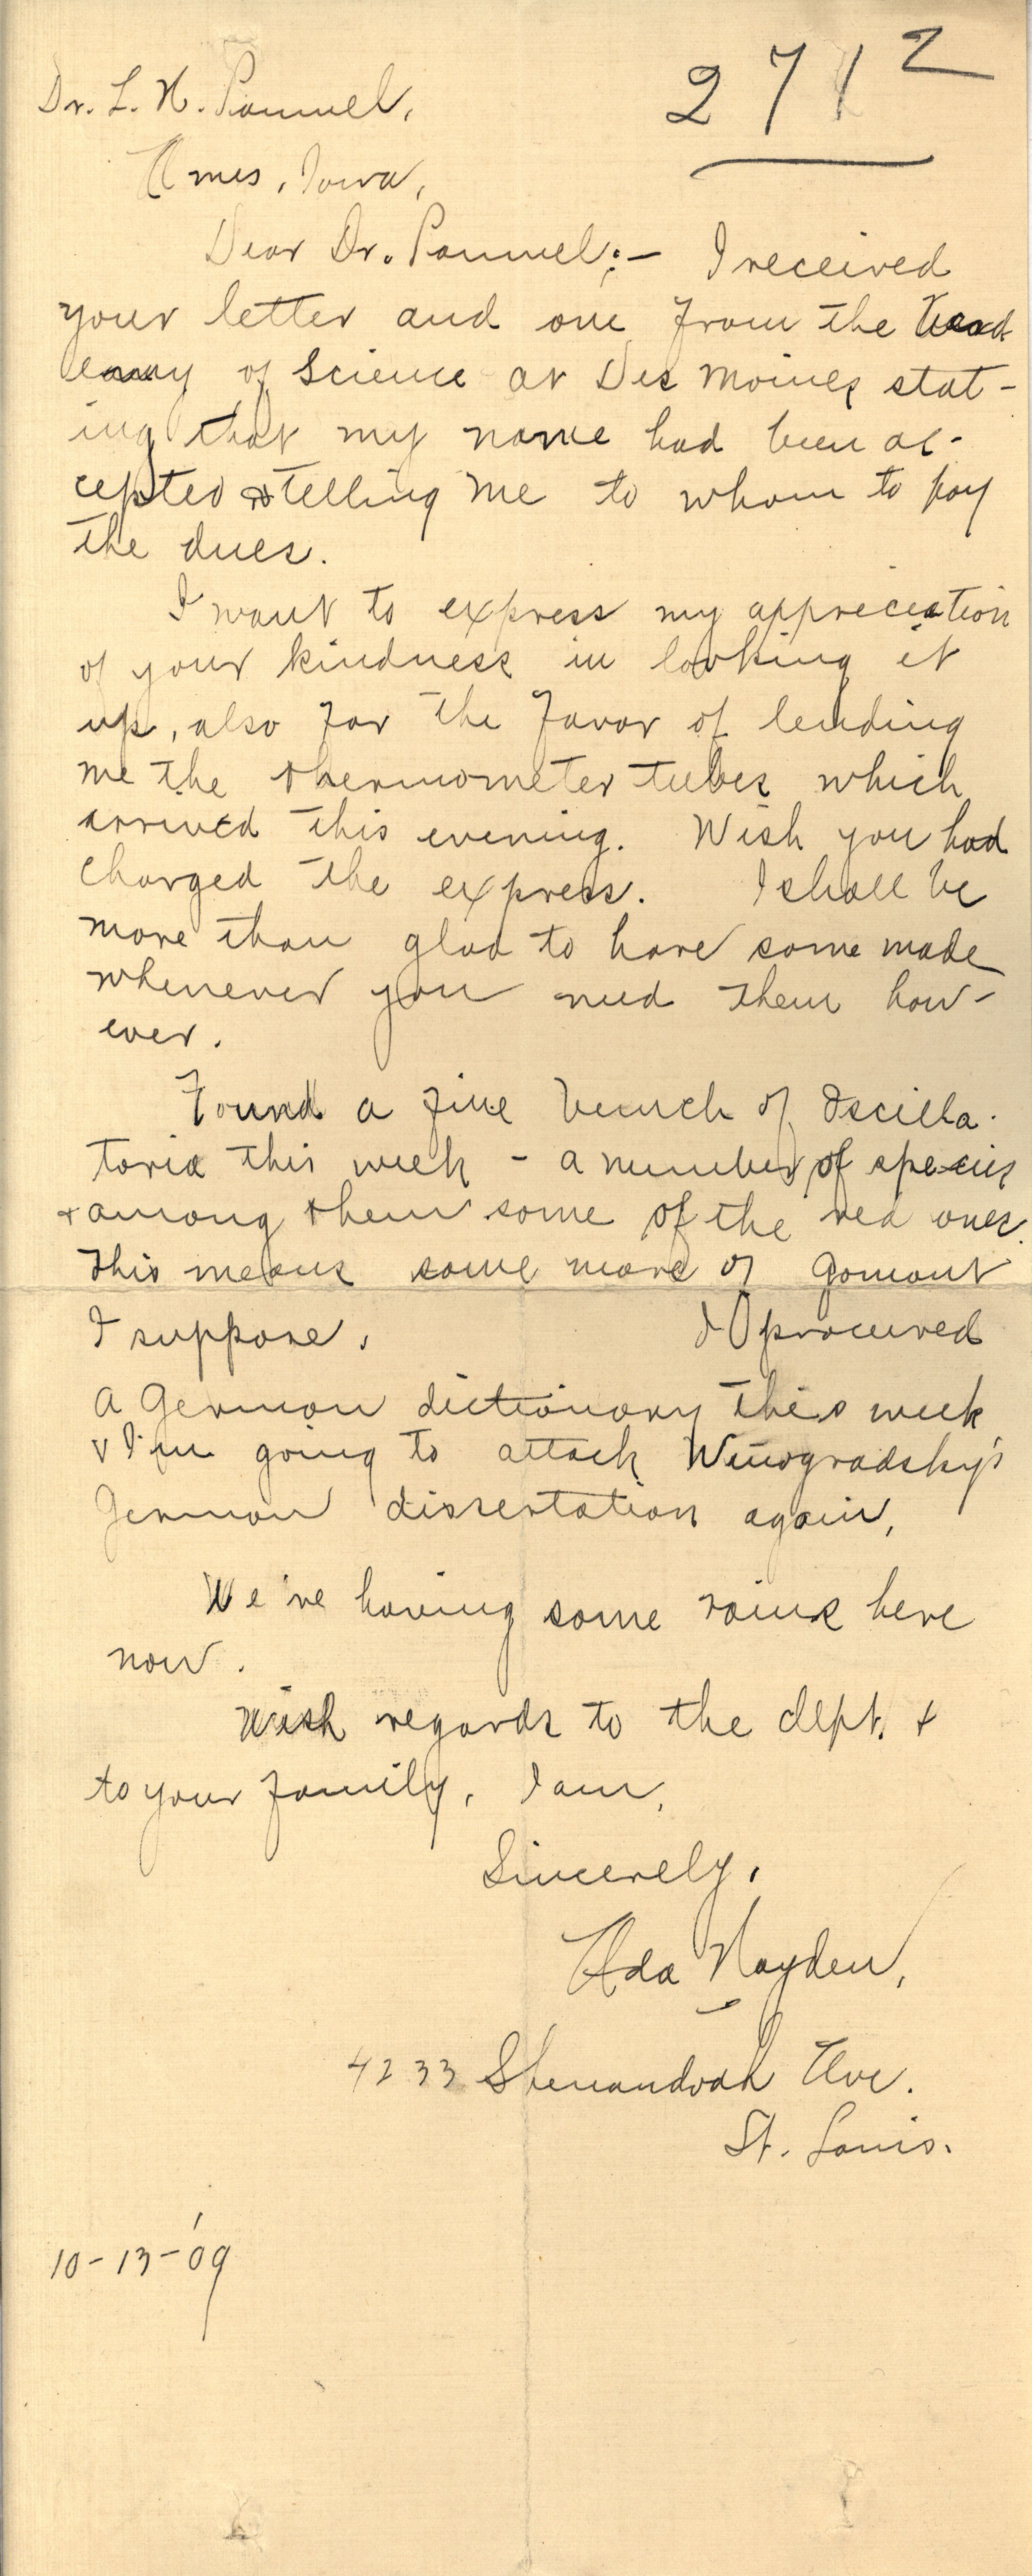 271 2
Dr. L. H. Pammel,
Ames, Iowa,
Dear Dr. Pammel:- I received
your letter and one from the Acad
emy of Science at Des Moines stat-
ing that my name had been ac-
cepted & telling me to whom to pay
the dues.
I want to express my appreciation
of your kindness in looking it
up, also for the favor of lending
me the thermometer tubes which
arrived this evening. Wish you had
charged the express. I shall be
more than glad to have some made
whenever you need them how-
ever.
Found a fine bunch of Oscilla-
toria this week - a number of species
& among them some of the red ones.
This means some more of Gomont
I suppose. I procured
a German dictionary this week
& I'm going to attack Winogradsky's
German dissertation again.
We're having some rains here
now.
With regards to the dept. &
to your family, I am,
Sincerely,
Ada Hayden,
4233 Shenandoah Ave.
St. Louis.
10-13-'09